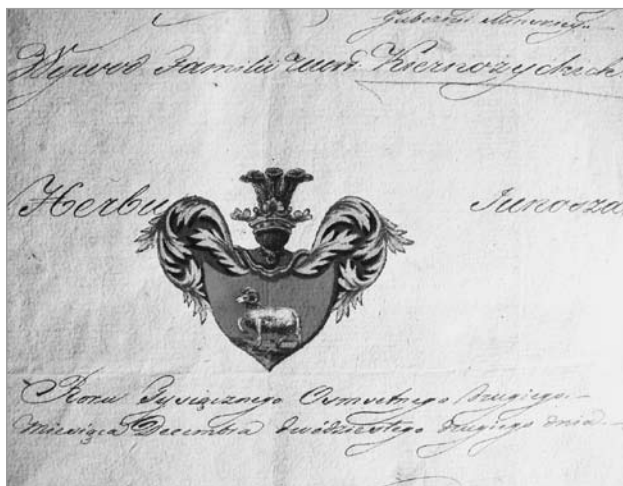 Gubernii Minskiey
Wywod Familii Kiernożyckich
Herbu Junosza
Roku Tysiącznego Osmsetnego Drugiego
Miesiąca Decembra dwódziestego drugiego dnia